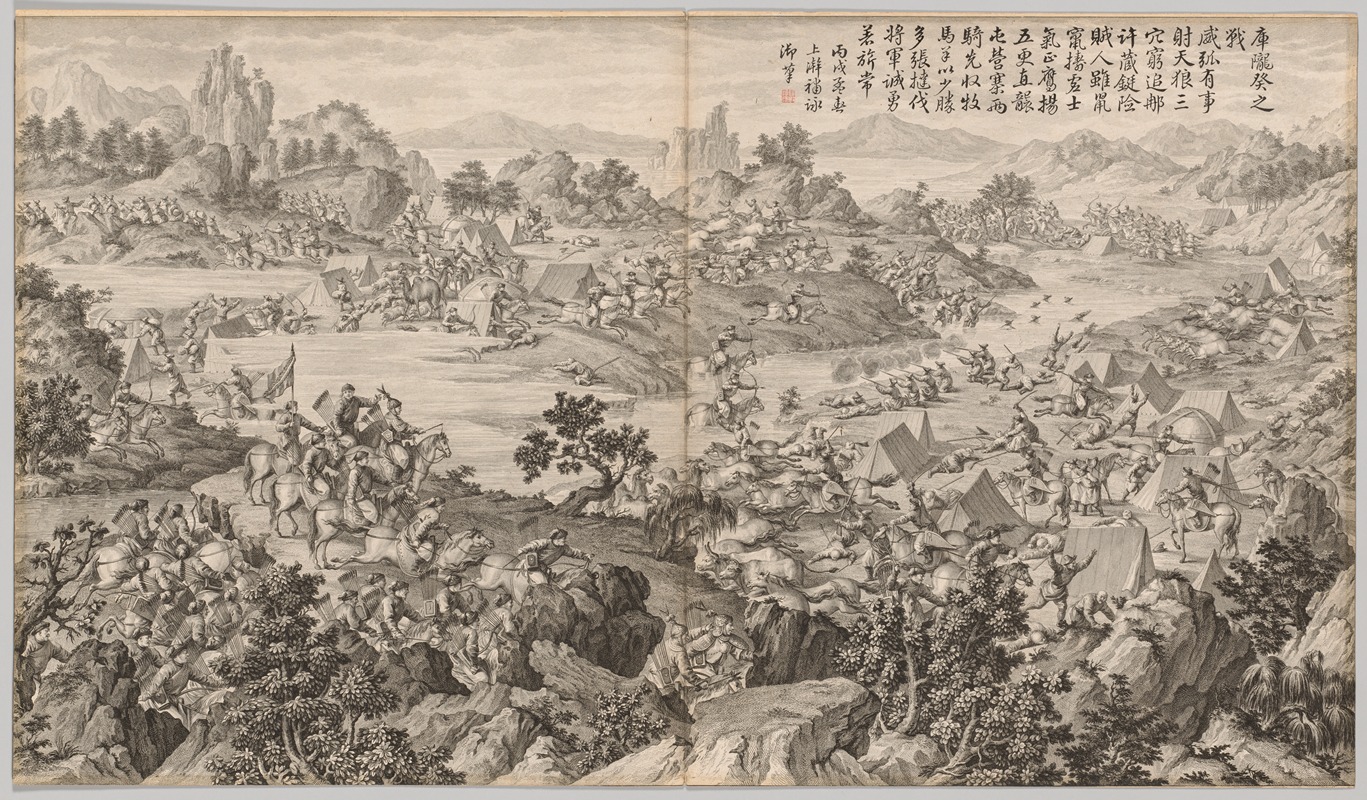 庫隴癸之
戰
威弧有事
射天狼三
穴窮追那
许藏鋌险
賊人雖鼠
竄擣虚士
氣正鹰揚
五更直襲
屯營寨兩
騎先収牧
馬羊以少勝
多張撻伐
將軍誠勇
著旂常
丙戌暮春
上澣補詠
御筆